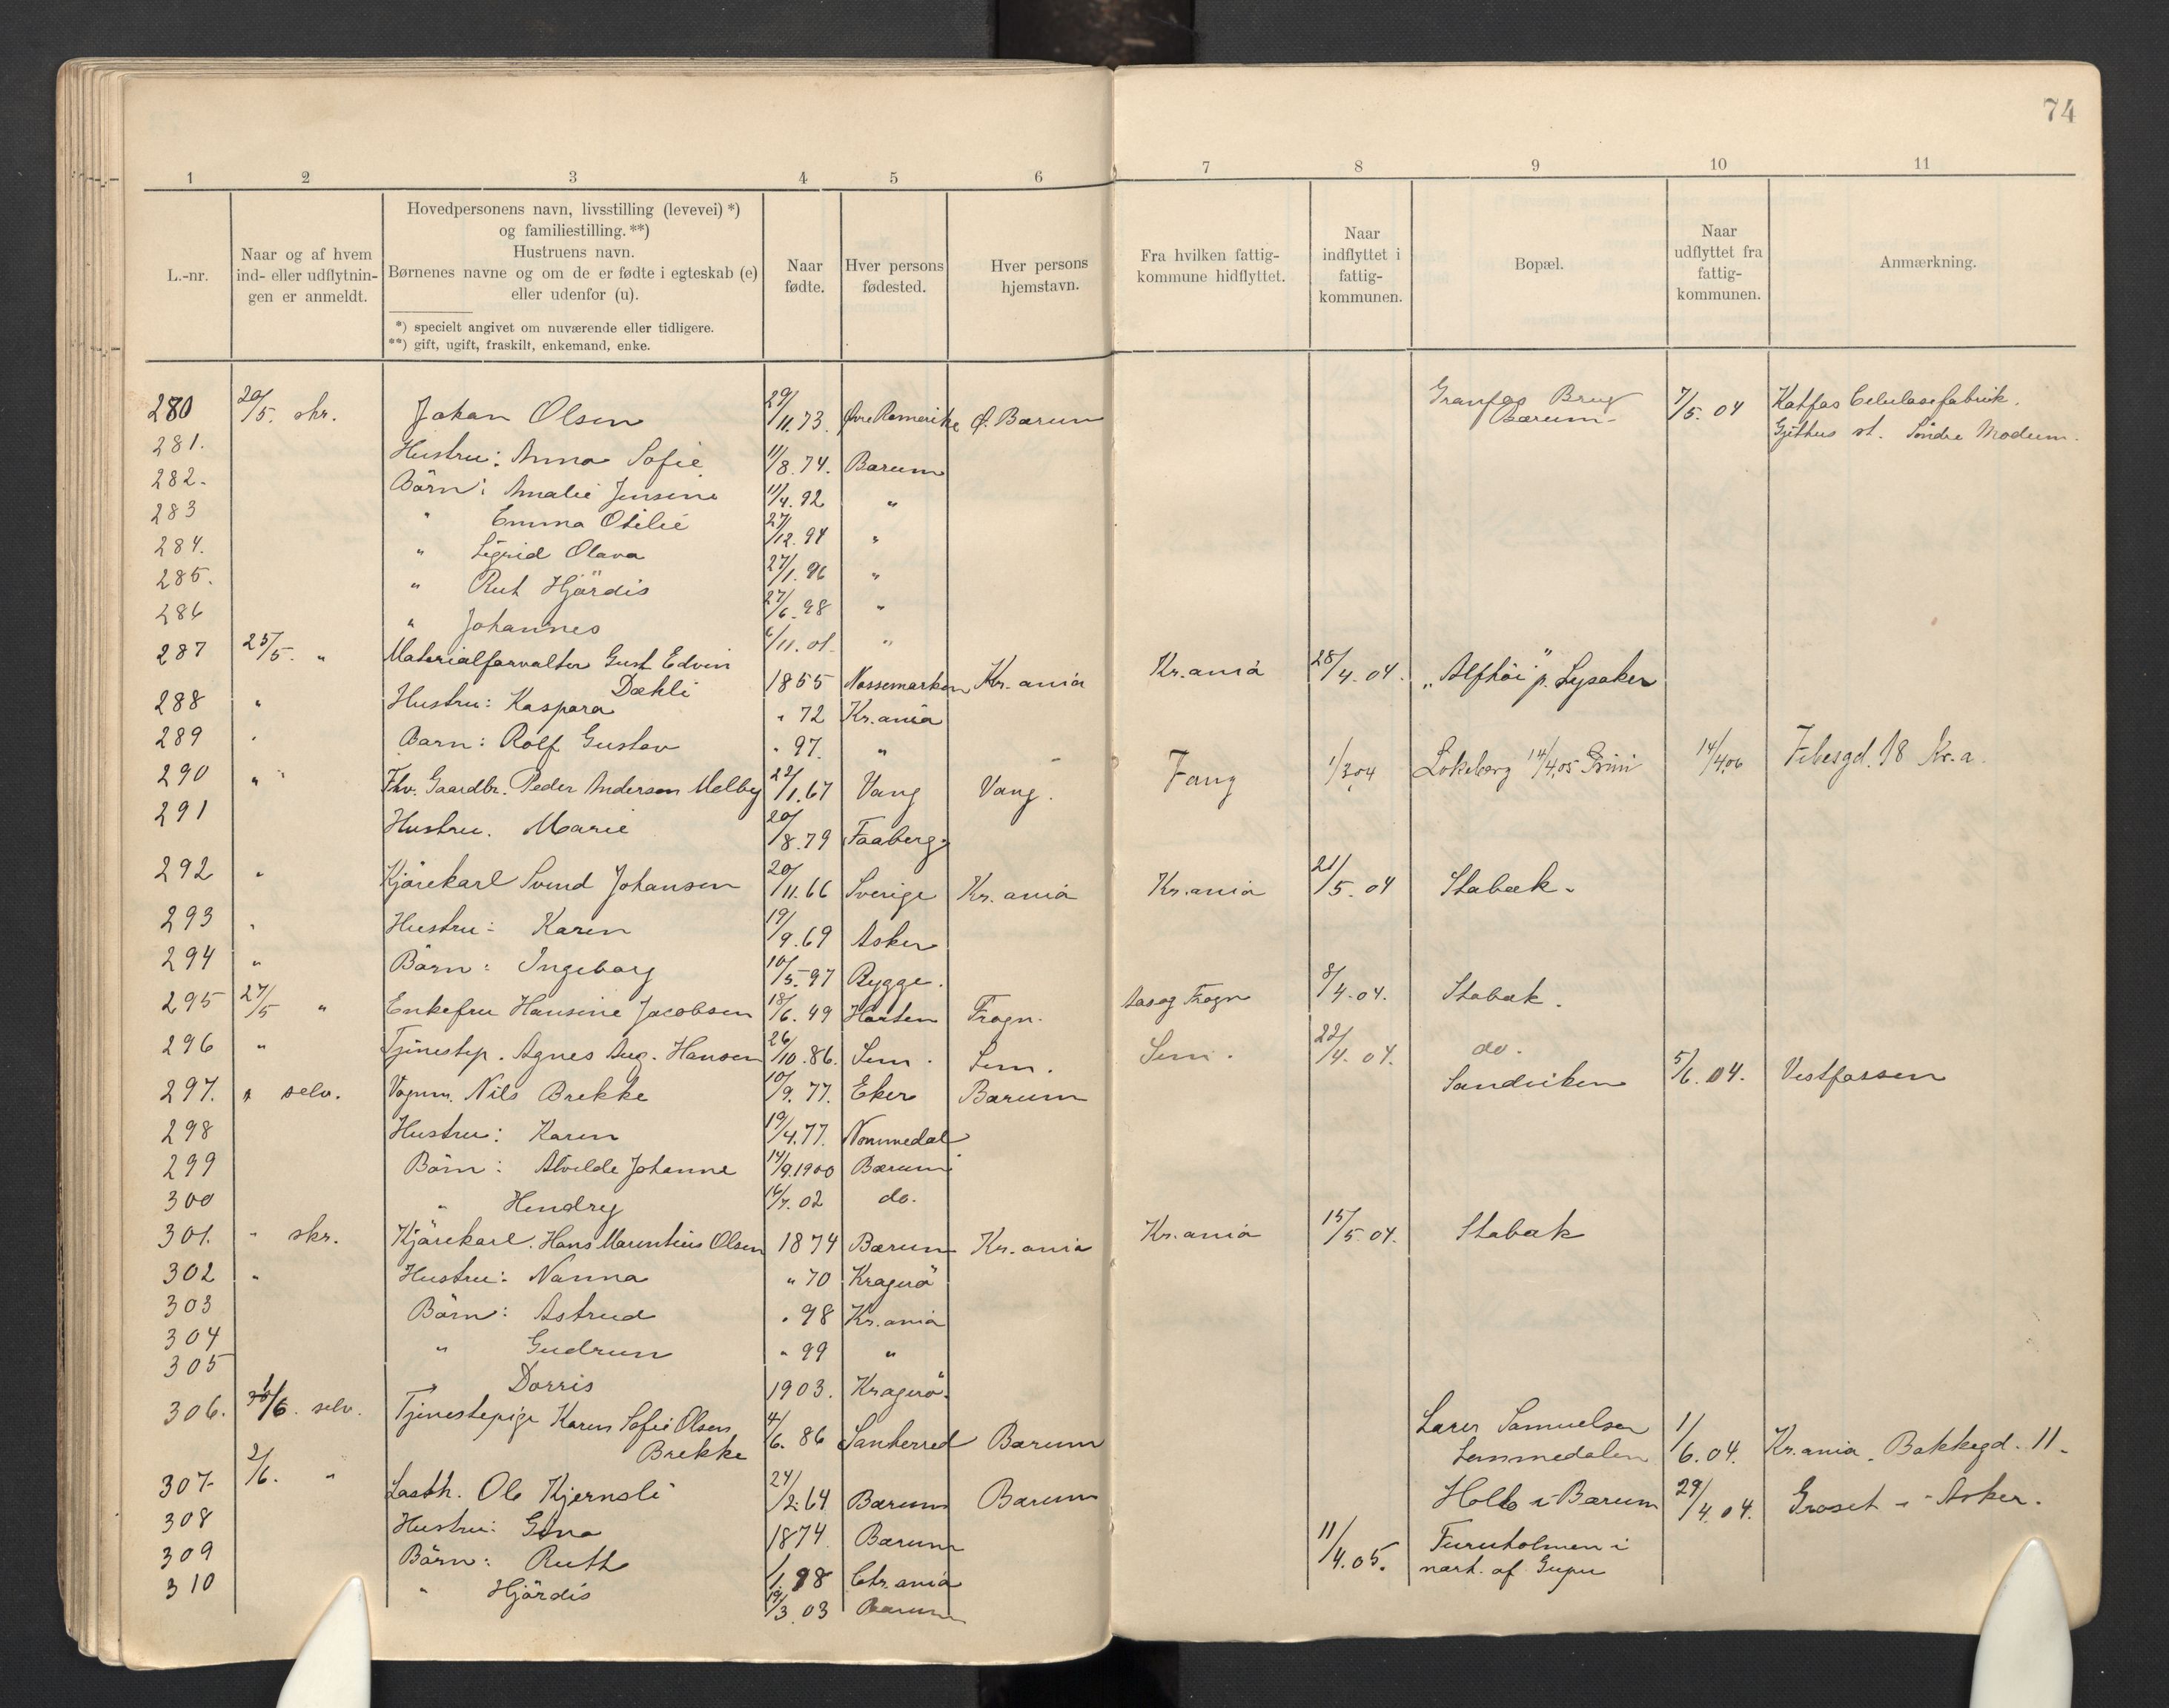 74
1 2 3 4 5 6 7 8 9 10 11
L.-nr.
Naar og af hvem
ind- eller udflytnin-
gen er anmeldt.
Hovedpersonens navn, livsstilling (levevei) *)
og familiestilling. **)
Hustruens navn.
Børnenes navne og om de er fødte i egteskab (e)
eller udenfor (u).
*) specielt angivet om nuværende eller tidligere.
**) gift, ugift, fraskilt, enkemand, enke.
Naar
fødte.
Hver persons
fødested.
Hver persons
hjemstavn.
Fra hvilken fattig-
kommune hidflyttet.
Naar
indflyttet i
fattig-
kommunen.
Bopæl.
Naar
udflyttet fra
fattig-
kommunen.
Anmærkning.
280 20/5. skr. Johan Olsen 29/11.73. Øvre Romerike Ø. Bærum Granfos Brug 7/5.04 Katfos Celulosefabrik.
Bærum- Gjethus st. Söndre Modum.
281. Hustru: Anna Sofie 11/8.74. Bærum
282. Börn: Amalie Jensine 11/4.92 "
283 " Emma Otilie 27/12.94 "
284. " Sigrid Olava 27/1.96 "
285. " Rut Hjördis 27/6.98 "
286 " Johannes 6/11.01. "
287 25/5. " Materialforvalter Gust Edvin
Dæhli 1855 Nossemarken Kr.ania Kr.ania 28/4.04. "Alfhöi" p. Lysaker
288 " Hustru: Kaspara " 72 Kr.ania
289 " Barn: Rolf Gustav " 97. "
290 " " Fhv. Gaardbr. Peder Andersen Melby 22/1.67 Vang Vang. Fang 1/3.04 Lökeberg 14/4.05 Grini 14/4.06 Fibesgd. 18 Kr.a
291 Hustru. Marie 20/8.79 Faaberg.
292 " Kjörekarl Svend Johansen 20/11.66 Sverige Kr.ania Kr.ania 21/5.04 Stabæk.
293 " Hustru: Karen 19/9.69 Asker
294 " Börn: Ingeborg 10/5.97 Rygge.
295 27/5 " Enkefru Hansine Jacobsen 18/6.49 Horten Frogn. Aas og Frogn 8/4.04. Stabæk.
296 " Tjenestep. Agnes Aug. Hansen 26/10.86. Sem. Sem. Sem. 22/4.04. do.
297. " selv. Vognm. Nils Brekke 10/9.77. Eker Bærum Sandviken 5/6.04. Vestfossen
298 Hustru: Karen 19/4.77. Nommedal
299 Börn: Alvilde Johanne 14/9.1900 Bærum
300 " Hendry 16/7.02 do.
301. " skr. Kjörekarl. Hans Marentius Olsen 1874 Bærum Kr.ania Kr.ania 15/5.04. Stabæk
302 " Hustru: Nanna " 70 Kragerö
303 Börn: Astrud " 98 Kr.ania
304 " Gudrun " 99 "
305 " Dorris 1903. Kragerö.
306. 1/6. selv. Tjenestepige Karen Sofie Olsen
Brekke 4/6.86 Sanherred Bærum Lærer Samuelsen
Lommedalen 1/6.04. Kr.ania. Bakkegd. 11.
307. 2/6. " Lasth. Ole Kjernsli 24/2.64 Bærum Bærum Holte i Bærum 29/4.04. Groset i Asker.
308 Hustru: Gina 1874. Bærum 11/4.05. Furuholmen i
309 Börn: Ruth 1/1.98 Chr.ania nærh. af
310 " Hjördis 19/3.03 Bærum